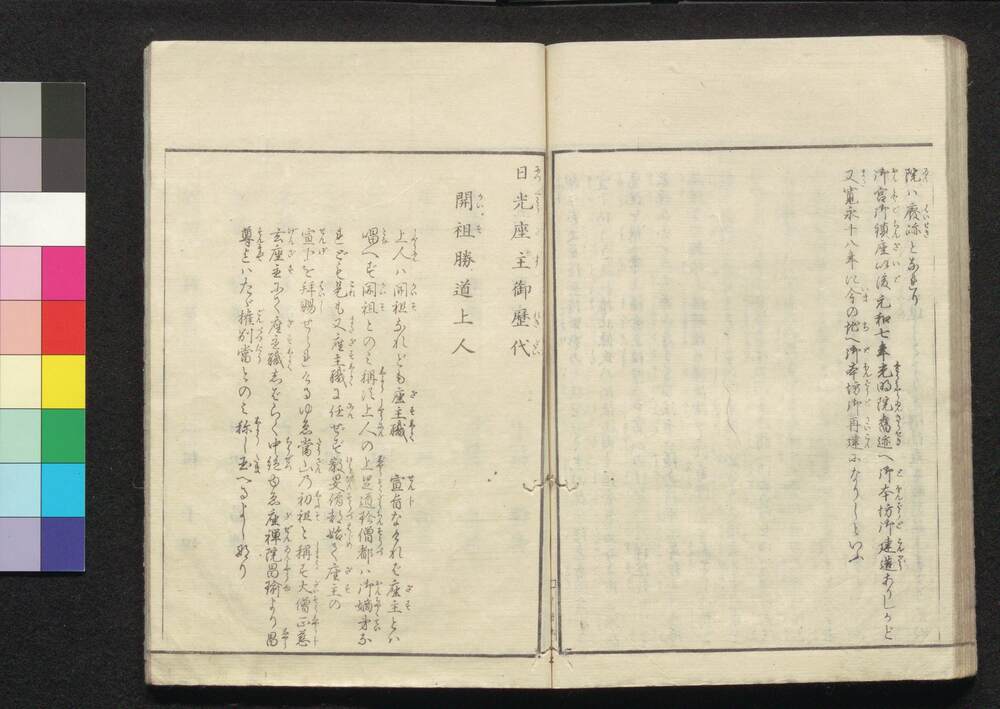 院ハ廃跡となりたり
御宮御鎮座以後元和七年光明院舊迹へ御本坊御建造ありしかど
又寛永十八年に今の地へ御本坊御再建になりしといふ
日光座主御歴代
開祖勝道上人
上人ハ開祖なれども座主職 宣旨なけれバ座主とハ
唱へず開祖とのミ稱す上人の上足道珍僧都ハ御嫡弟な
れども是も又座主職に任せず教旻僧都始て座主の
宣下を拝賜せられける ゆゑ當山乃初祖と稱す大僧正慈
玄座主にて座主職志ばらく中絶ゆゑ座禪院昌瑜より昌
尊とハたゞ権別當とのミ称し玉へるよしなり